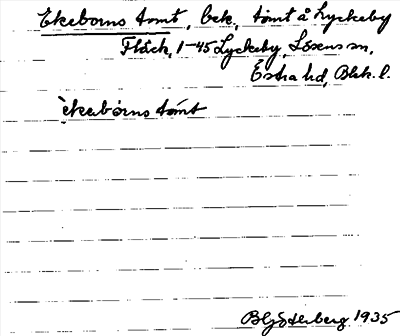 Ekeborns tomt, bek. tomt å Lyckeby
Fläck, 1-45 Lyckeby, Lösens sn,
Östra hd, Blek. l.
`ekebórns tómt
1935